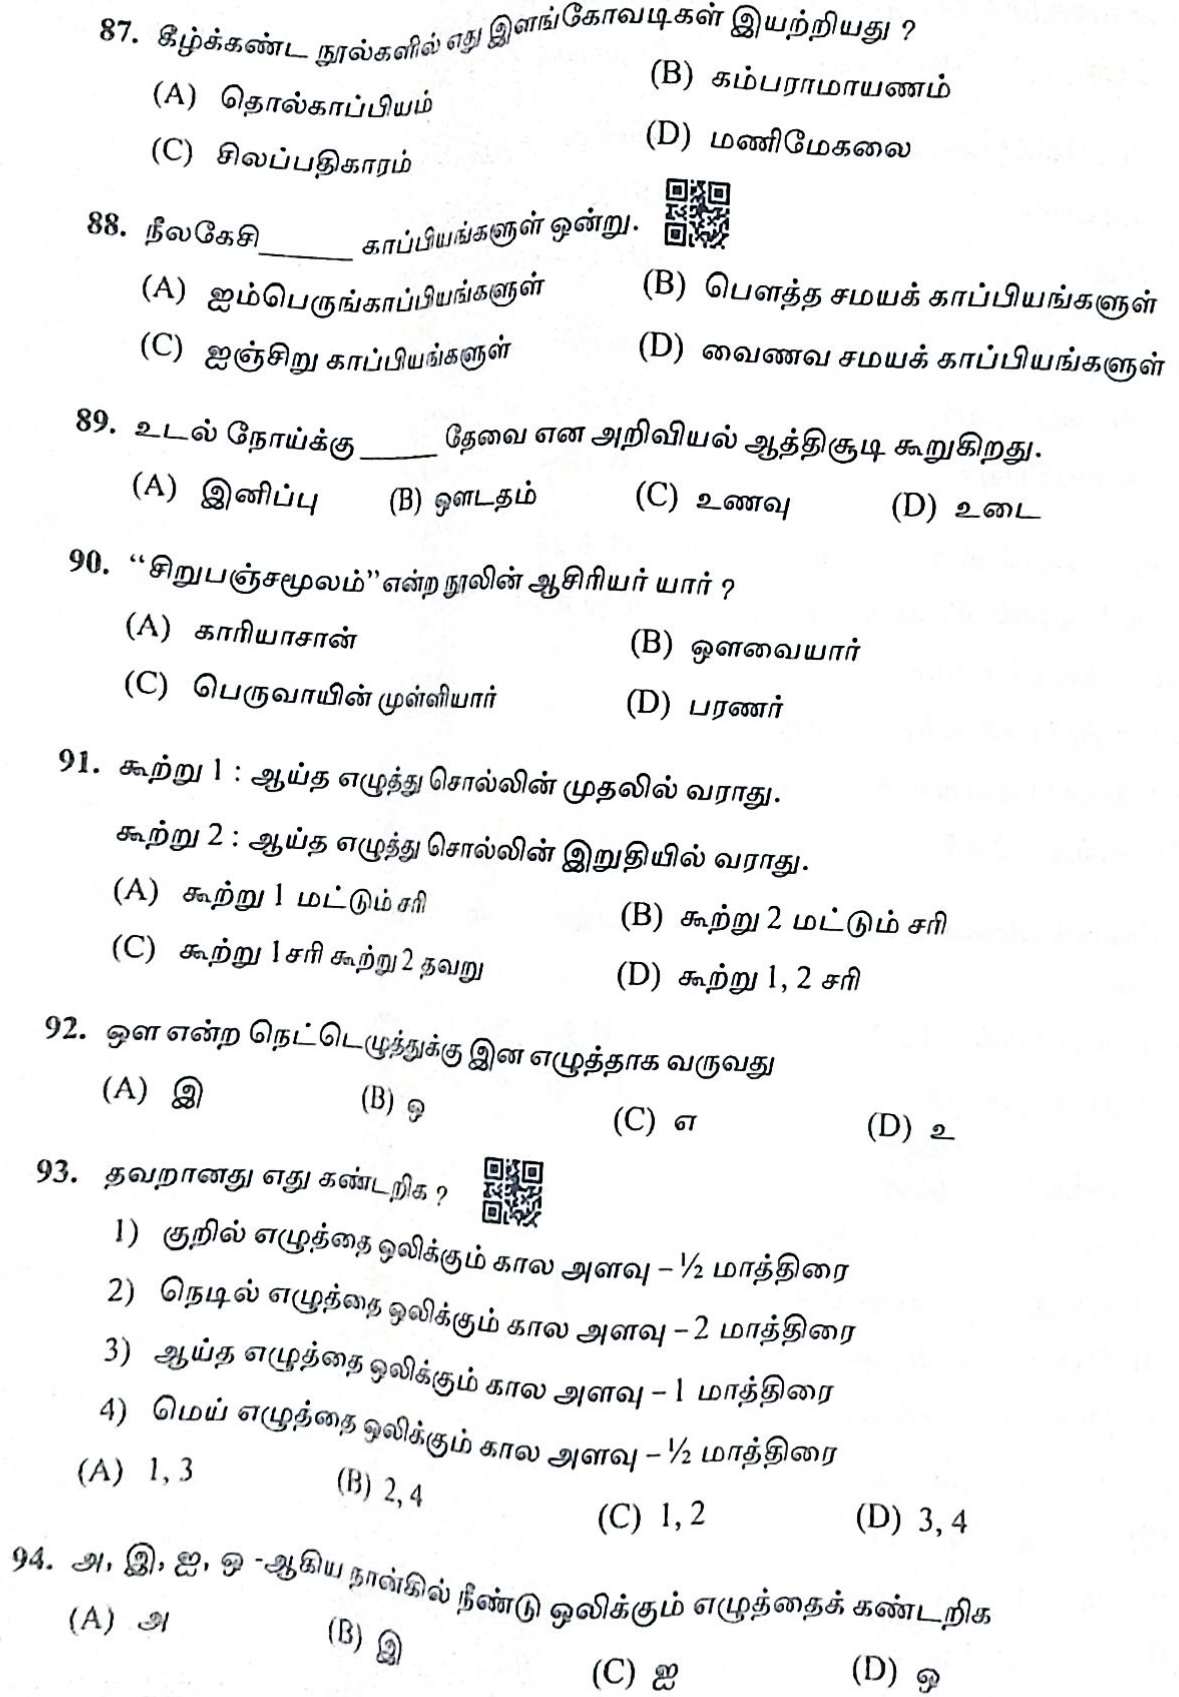 87. கீழ்க்கண்ட நூல்களில் எது இளங்கோவடிகள் இயற்றியது ?
(A) தொல்காப்பியம் (B) கம்பராமாயணம்
(C) சிலப்பதிகாரம் (D) மணிமேகலை
88. நீலகேசி______ காப்பியங்களுள் ஒன்று.
(A) ஐம்பெருங்காப்பியங்களுள் (B) பௌத்த சமயக் காப்பியங்களுள்
(C) ஐஞ்சிறு காப்பியங்களுள் (D) வைணவ சமயக் காப்பியங்களுள்
89. உடல் நோய்க்கு _____ தேவை என அறிவியல் ஆத்திசூடி கூறுகிறது.
(A) இனிப்பு (B) ஔடதம் (C) உணவு (D) உடை
90. “சிறுபஞ்சமூலம்” என்ற நூலின் ஆசிரியர் யார் ?
(A) காரியாசான் (B) ஔவையார்
(C) பெருவாயின் முள்ளியார் (D) பரணர்
91. கூற்று 1 : ஆய்த எழுத்து சொல்லின் முதலில் வராது.
கூற்று 2 : ஆய்த எழுத்து சொல்லின் இறுதியில் வராது.
(A) கூற்று 1 மட்டும் சரி (B) கூற்று 2 மட்டும் சரி
(C) கூற்று 1 சரி கூற்று 2 தவறு (D) கூற்று 1, 2 சரி
92. ஔ என்ற நெட்டெழுத்துக்கு இன எழுத்தாக வருவது
(A) இ (B) ஒ (C) எ (D) உ
93. தவறானது எது கண்டறிக ?
1) குறில் எழுத்தை ஒலிக்கும் கால அளவு – ½ மாத்திரை
2) நெடில் எழுத்தை ஒலிக்கும் கால அளவு – 2 மாத்திரை
3) ஆய்த எழுத்தை ஒலிக்கும் கால அளவு – 1 மாத்திரை
4) மெய் எழுத்தை ஒலிக்கும் கால அளவு – ½ மாத்திரை
(A) 1, 3 (B) 2, 4 (C) 1, 2 (D) 3, 4
94. அ, இ, ஐ, ஒ -ஆகிய நான்கில் நீண்டு ஒலிக்கும் எழுத்தைக் கண்டறிக
(A) அ (B) இ (C) ஐ (D) ஒ